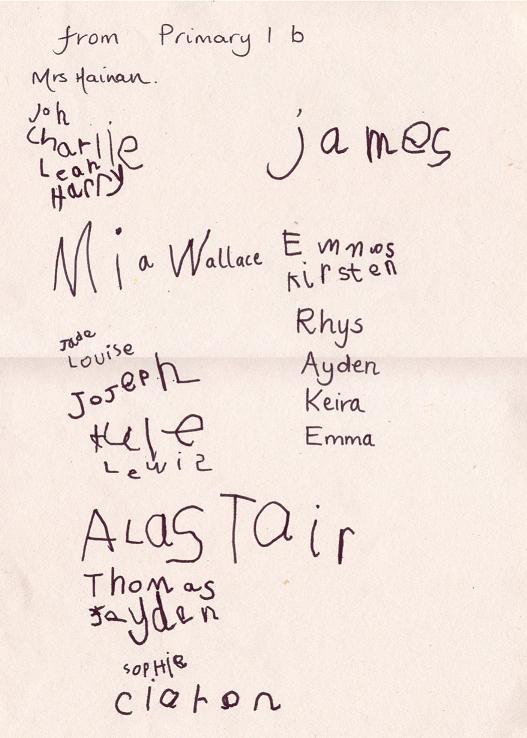 from Primary 1 b
Mrs Hainan.
Joh
Charlie
Leah
Harry
james
Mia Wallace
Kirsten
Rhys
Ayden
Keira
Emma
Jade
Louise
Joseph
Lewis
ALASTAir
Thomas
Jayden
SOPHie